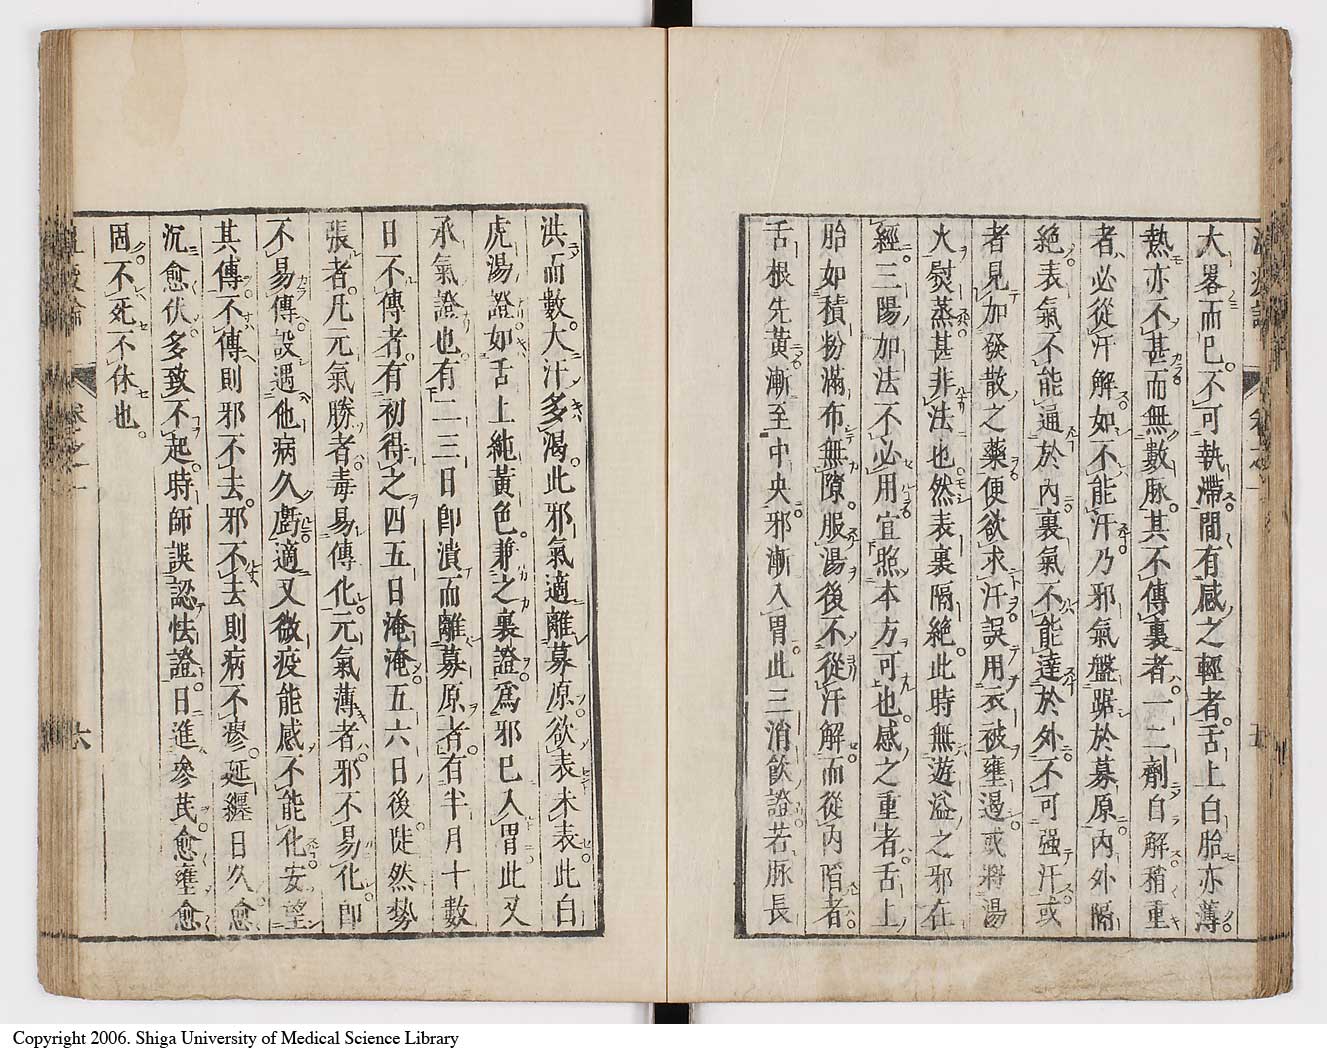 大畧而已不可執滯間有感之輕者舌上白胎亦薄
熱亦不甚而無數脉其不傳裏者一二劑自解稍重
者必從汗解如不能汗乃邪氣盤踞於募原內外隔
絶表氣不能通於內裏氣不能達於外不可强汗或
者見加發散之藥便欲求汗誤用衣被壅遏或將湯
火熨蒸甚非法也然表裏隔絶此時無遊溢之邪在
經三陽加法不必用宜照本方可也感之重者舌上
胎如積粉滿布無隙服湯後不從汗解而從內陷者
舌根先黃漸至中央邪漸入胃此三消飲證若脉長
洪而數大汗多渴此邪氣適離募原欲表未表此白
虎湯證如舌上純黃色兼之裏證爲邪已入胃此又
承氣證也有二三日卽潰而離募原者有半月十數
日不傳者有初得之四五日淹淹五六日後陡然勢
張者凡元氣勝者毒易傳化元氣薄者邪不易化卽
不易傳設遇他病久虧適又微疫能感不能化安望
其傳不傳則邪不去邪不去則病不瘳延纏日久愈
沉愈伏多致不起時師誤認怯證日進參芪愈壅愈
固不死不休也
卷之一
六
Copyright 2006. Shiga University of Medical Science Library